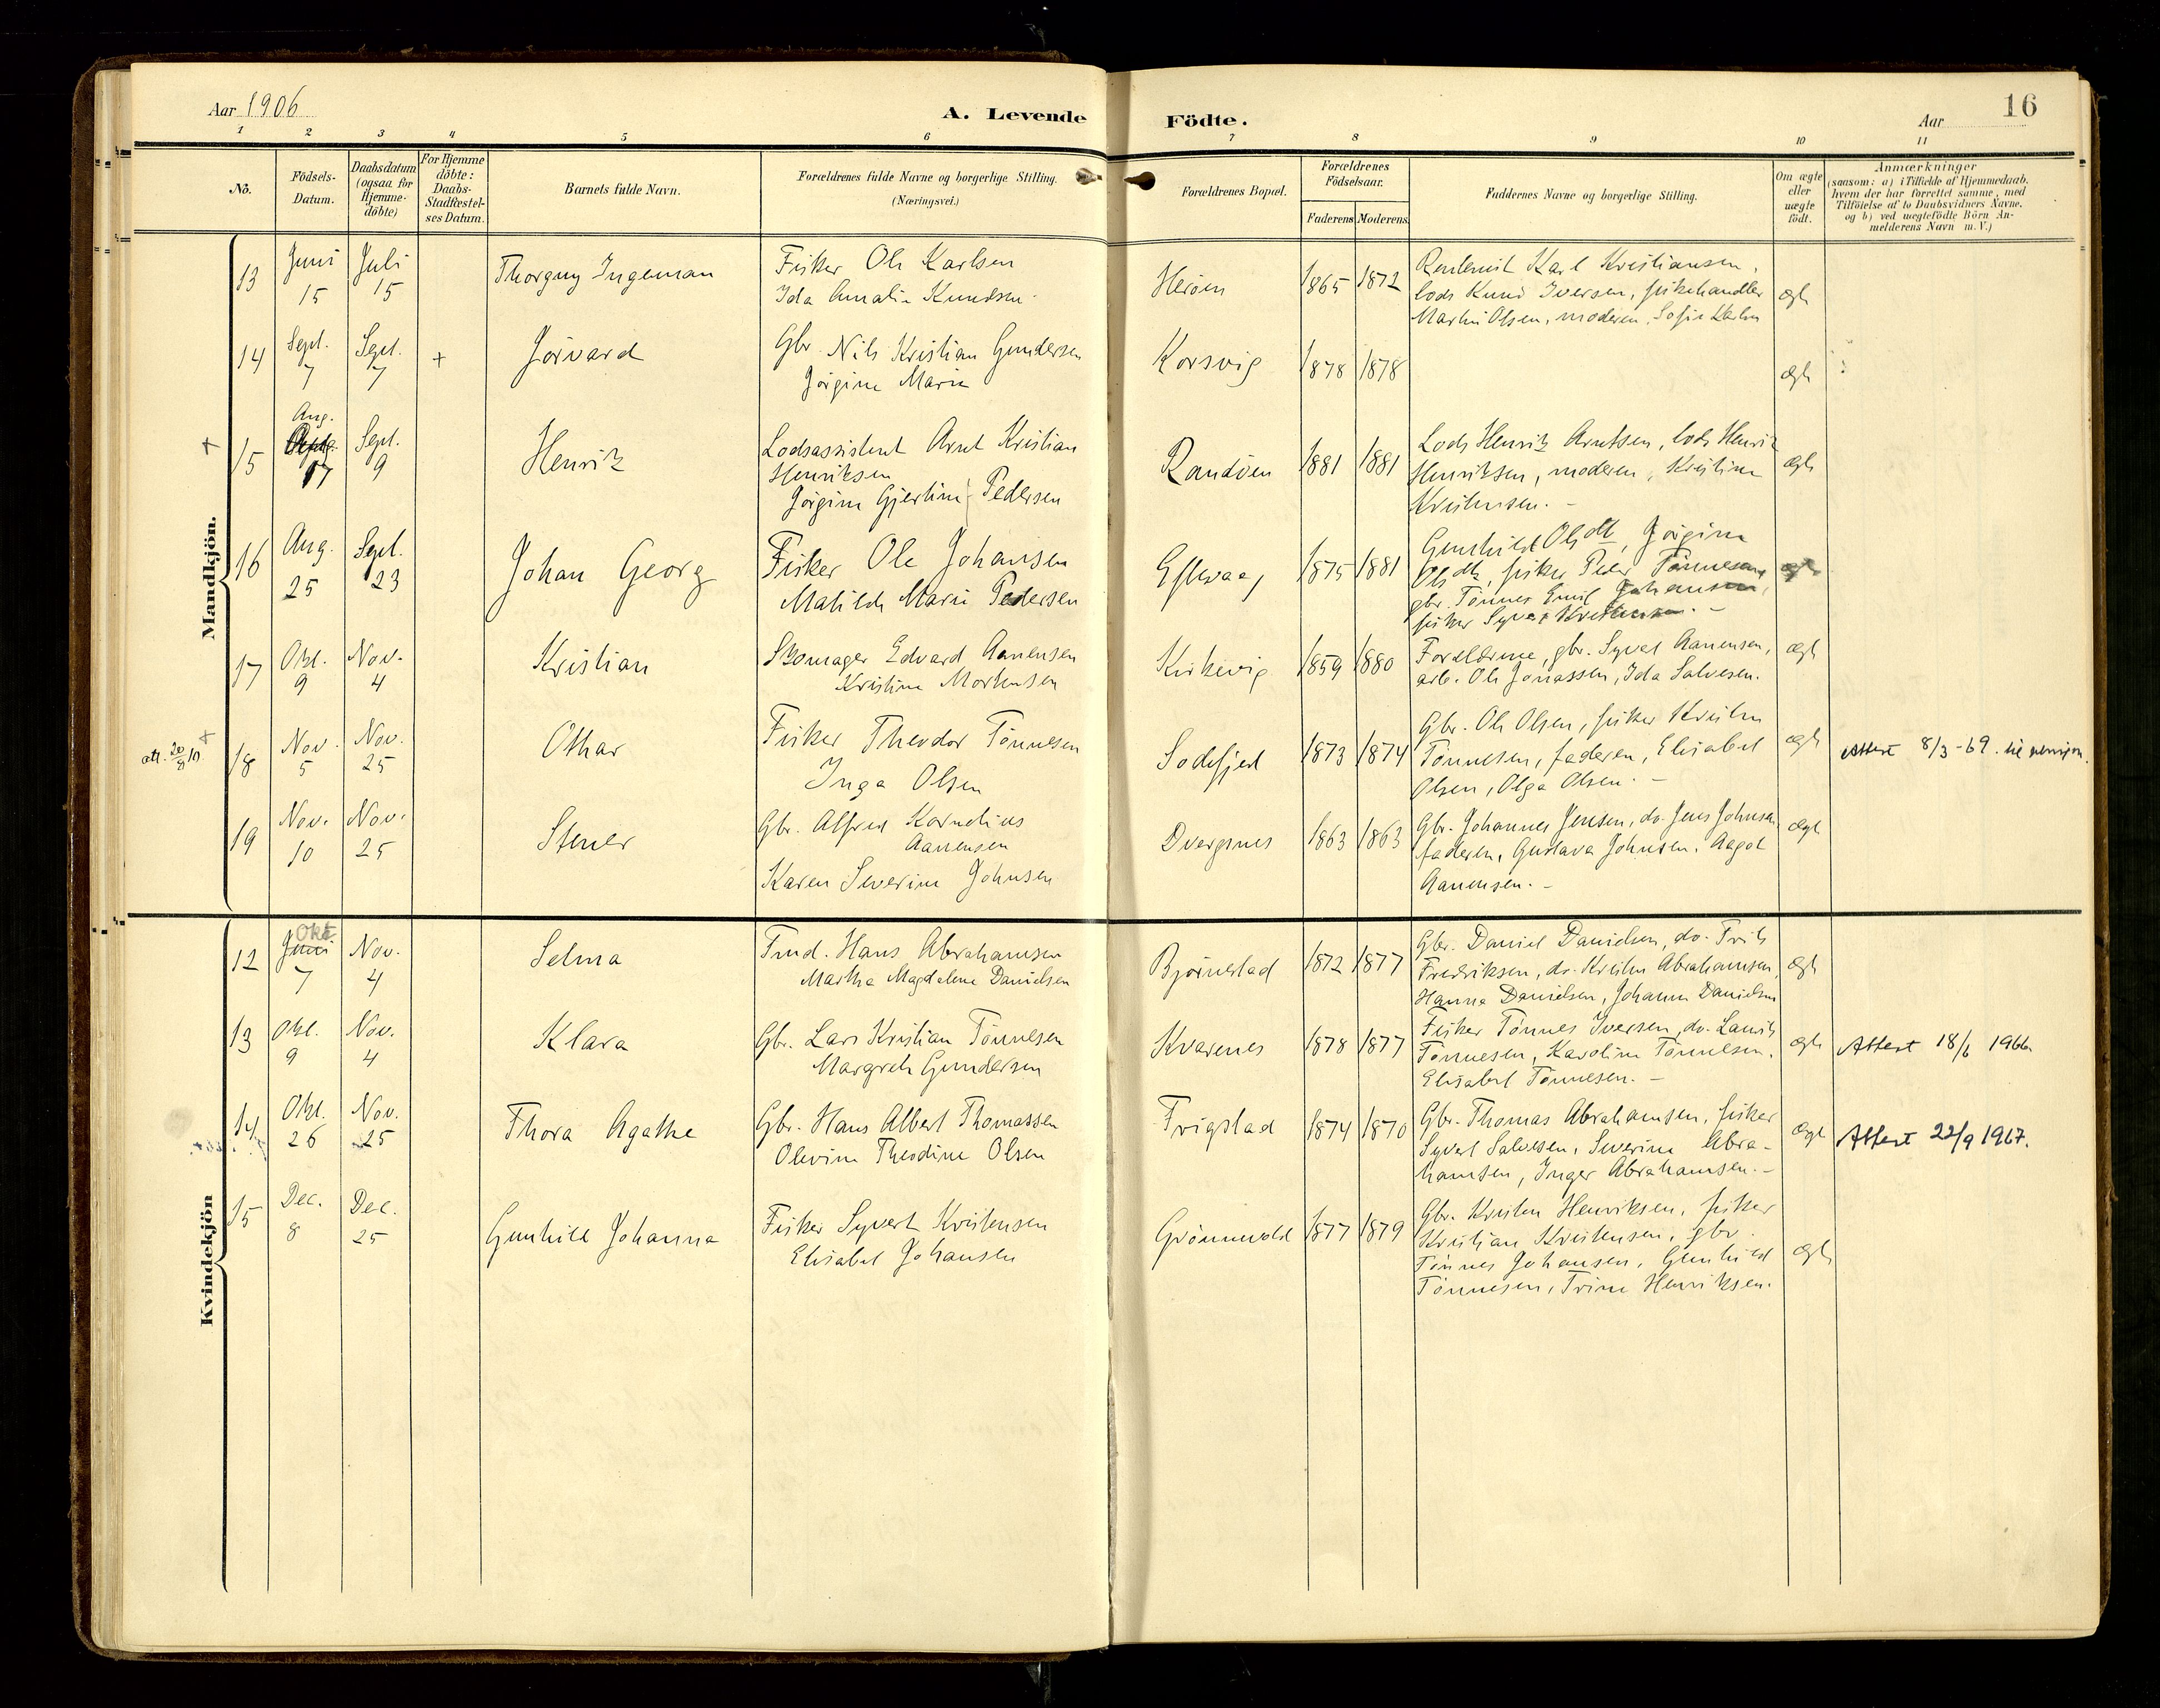 Aar 1906
A. Levende
Födte.
Aar
16
1 2 3 4 5 6 7 8 9 10 11
No.
Födsels-
Datum.
Daabsdatum
(ogsaa for
Hjemme-
döbte)
For Hjemme
döbte:
Daabs-
Stadfæstel-
ses Datum.
Barnets fulde Navn.
Forældrenes fulde Navne og borgerlige Stilling.
(Næringsvei.)
Forældrenes Bopæl.
Forældrenes
Födselsaar.
Faderens Moderens
Faddernes Navne og borgerlige Stilling.
Om ægte
eller
uægte
födt.
Anmærkninger
(saasom: a) i Tilfælde af Hjemmedaab,
hvem der har forrettet samme, med
Tilföielse af to Daabsvidners Navne,
og b) ved uægtefödte Börn An-
melderens Navn m.V.)
Mandkjön.
13 Juni 15 Juli 15
Thorguy Ingeman
Fisker Ole Karlsen
Ida Amalie Knudsen
Heröen
1865 1872
Karl Kristiansen,
lods Knud Iversen, fiskehandler
Martin Olsen, moderen, Sofie Karlsen
ægte
14 Sept. 7 Sept. 7 +
Jörvard
Gbr. Nils Kristian Gundersen
Jörgine Marie
Korsvig
1878 1878
ægte
+
15 Aug. 17 Sept. 9
Henrik
Lodsassistent Arnt Kristian
Henriksen
Jörgine Gjertine Pedersen
Randöen
1881 1881
Lods Henrik Arntsen, lods Henrik
Henriksen, moderen, Kristine
Kristensen. -
ægte
16 Aug. 25 Sept. 23
Johan Georg
Fisker Ole Johansen
Matilde Marie Pedersen
Eftevaag
1875 1881
Gunhild Olsdtr, Jörgine
Olsdtr, fisker Peder Tönnesen,
gbr. Tönnes Emil Johansen,
fisker Syvert Kristensen. -
ægte
17 Okt. 9 Nov. 4
Kristian
Skomager Edvard Aanensen
Kristine Mortensen
Kirkevig
1859 1880
Forældrene, gbr. Syvert Aanensen,
arb. Ole Jonassen, Ida Salvesen.
ægte
att. 20/8 10. +
18 Nov. 5 Nov. 25
Othar
Fisker Theodor Tönnesen
Inga Olsen
Sodefjed
1873 1874
Gbr. Ole Olsen, fisker Kristen
Tönnesen, faderen, Elisabet
Olsen, Olga Olsen. -
ægte
Attest 8/3-69. til pensjon.
19 Nov. 10 Nov. 25
Stener
Gbr. Alfred Kornelius
Aanensen
Karen Severine Johnsen
Dvergsnes
1863 1863
Gbr. Johannes Jensen, do. Jens Johnsen
faderen, Gustava Johnsen, Aagot
Aanensen. -
ægte
Kvindekjön
12 Juni Okt 7 Nov. 4
Selma
Tmd. Hans Abrahamsen
Martha Magdalene Danielsen
Björnestad
1872 1877
Gbr. Daniel Danielsen, do. Frits
Fredriksen, do. Kristen Abrahamsen,
Hanna Danielsen, Johanne Danielsen
ægte
13 Okt. 9 Nov. 4
Klara
Gbr. Lars Kristian Tönnesen
Margrete Gundersen
Kvarenes
1878 1877
Fisker Tönnes Iversen, do. Laurits
Tönnesen, Karoline Tönnesen,
Elisabet Tönnesen. -
ægte
Attest 18/6 1966
14 Okt. 26 Nov. 25
Thora Agathe
Gbr. Hans Albert Thomassen
Olevine Theodine Olsen
Frigstad
1874 1870
Gbr. Thomas Abrahamsen, fisker
Syvert Salvesen, Severine Abra-
hamsen, Inger Abrahamsen. -
ægte
Attest 22/9 1967.
15 Dec. 8 Dec. 25
Gunhild Johanna
Fisker Syvert Kristensen
Elisabet Johansen
Grönnevold
1877 1879
Gbr. Kristen Henriksen, fisker
Kristian Kristensen, gbr.
Tönnes Johansen, Gunhild
Tönnesen, Trine Henriksen.
ægte